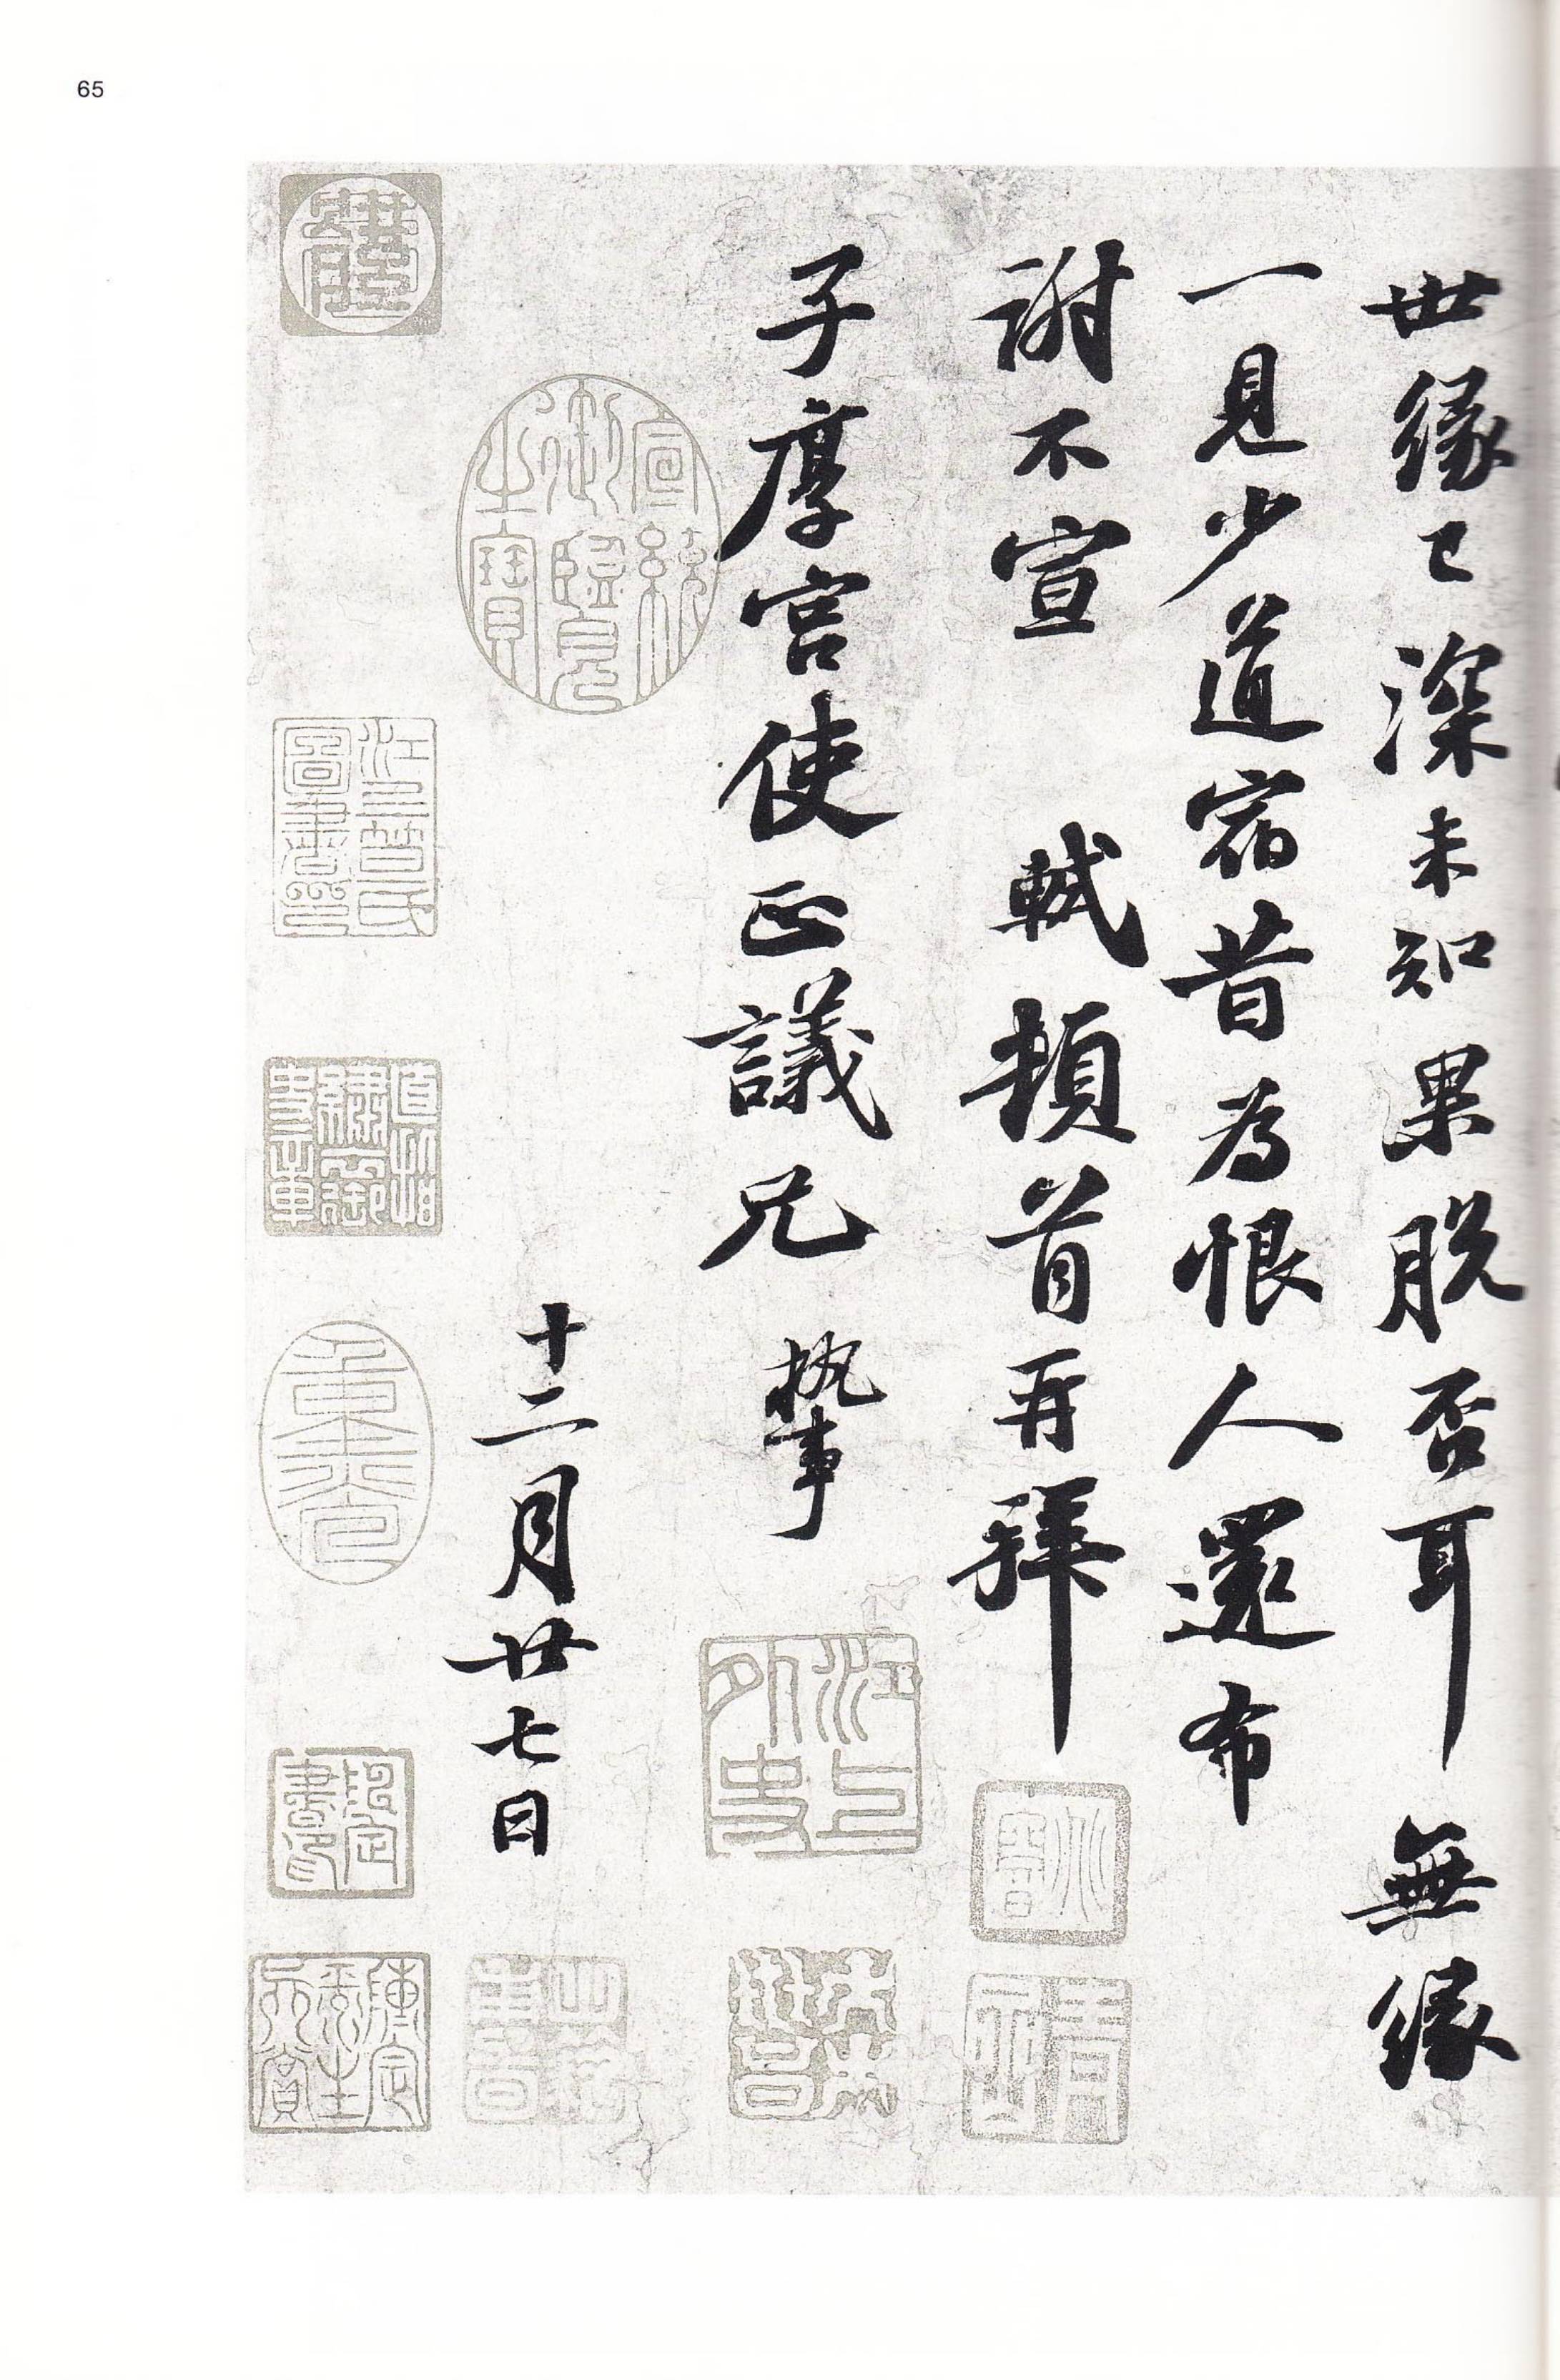 65
世緣已深未知果脫否耳無緣
一見少道宿昔為恨人還布
謝不宣 軾頓首再拜
子厚宮使正議兄 執事
十二月廿七日
宣統御覽之寶
江上外史